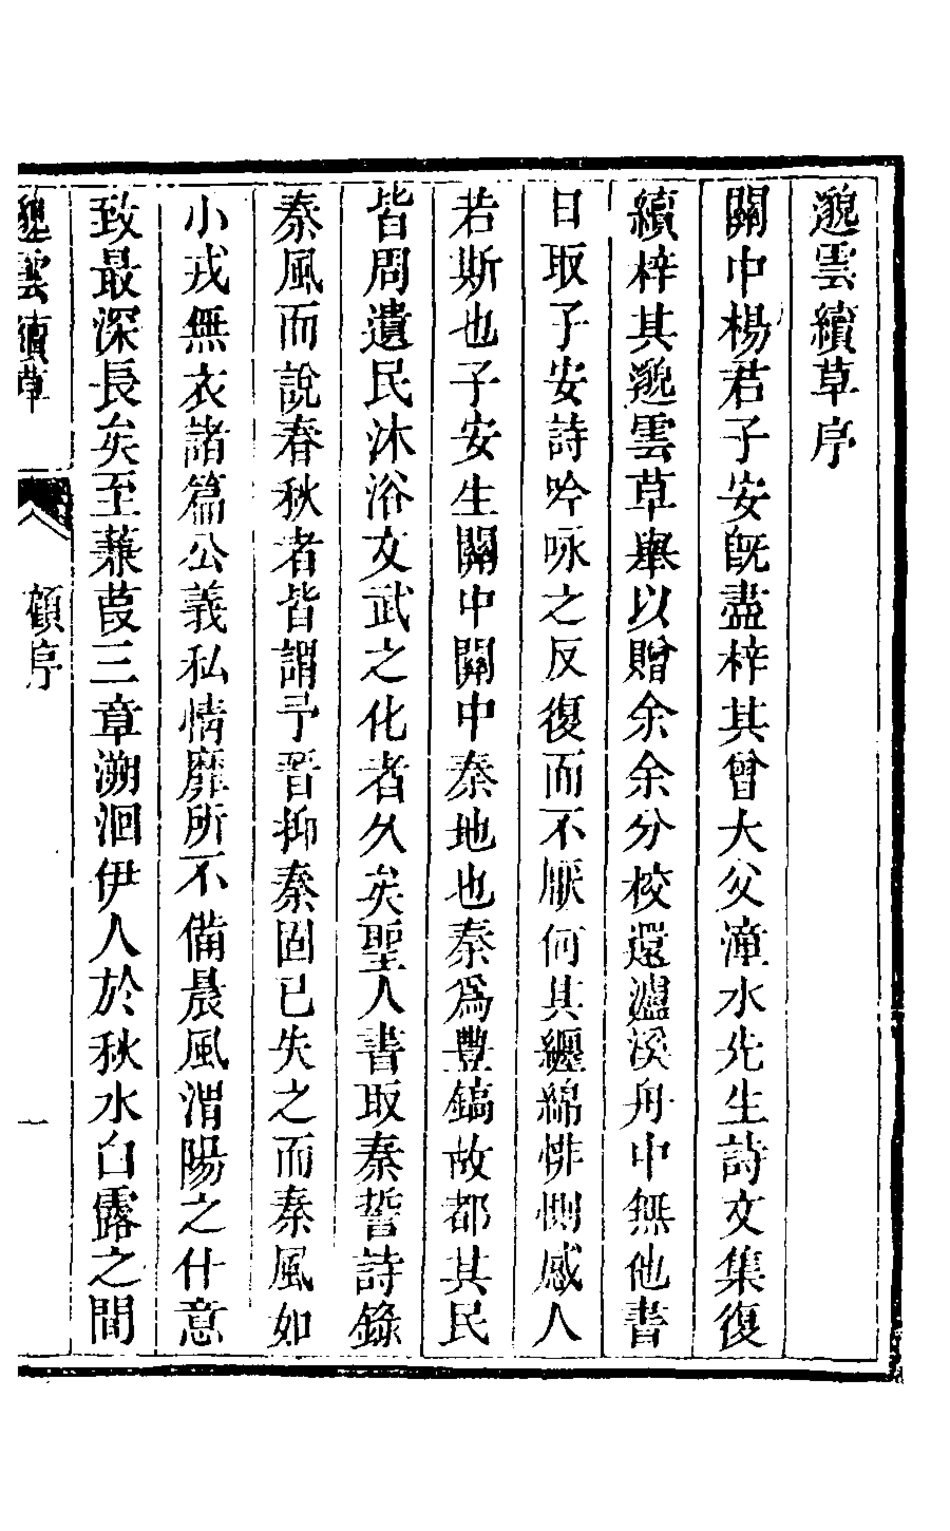 邈雲續草序
關中楊君子安旣盡梓其曾大父漳水先生詩文集復
續梓其邈雲草舉以贈余余分校還瀘溪舟中無他書
日取子安詩吟咏之反復而不厭何其纏綿悱惻感人
若斯也子安生關中關中秦地也秦爲豐鎬故都其民
皆周遺民沐浴文武之化者久矣聖人書取秦誓詩錄
秦風而說春秋者皆謂予晉抑秦固已失之而秦風如
小戎無衣諸篇公義私情靡所不備晨風渭陽之什意
致最深長矣至蒹葭三章溯洄伊人於秋水白露之間
邈雲續草 顧序 一